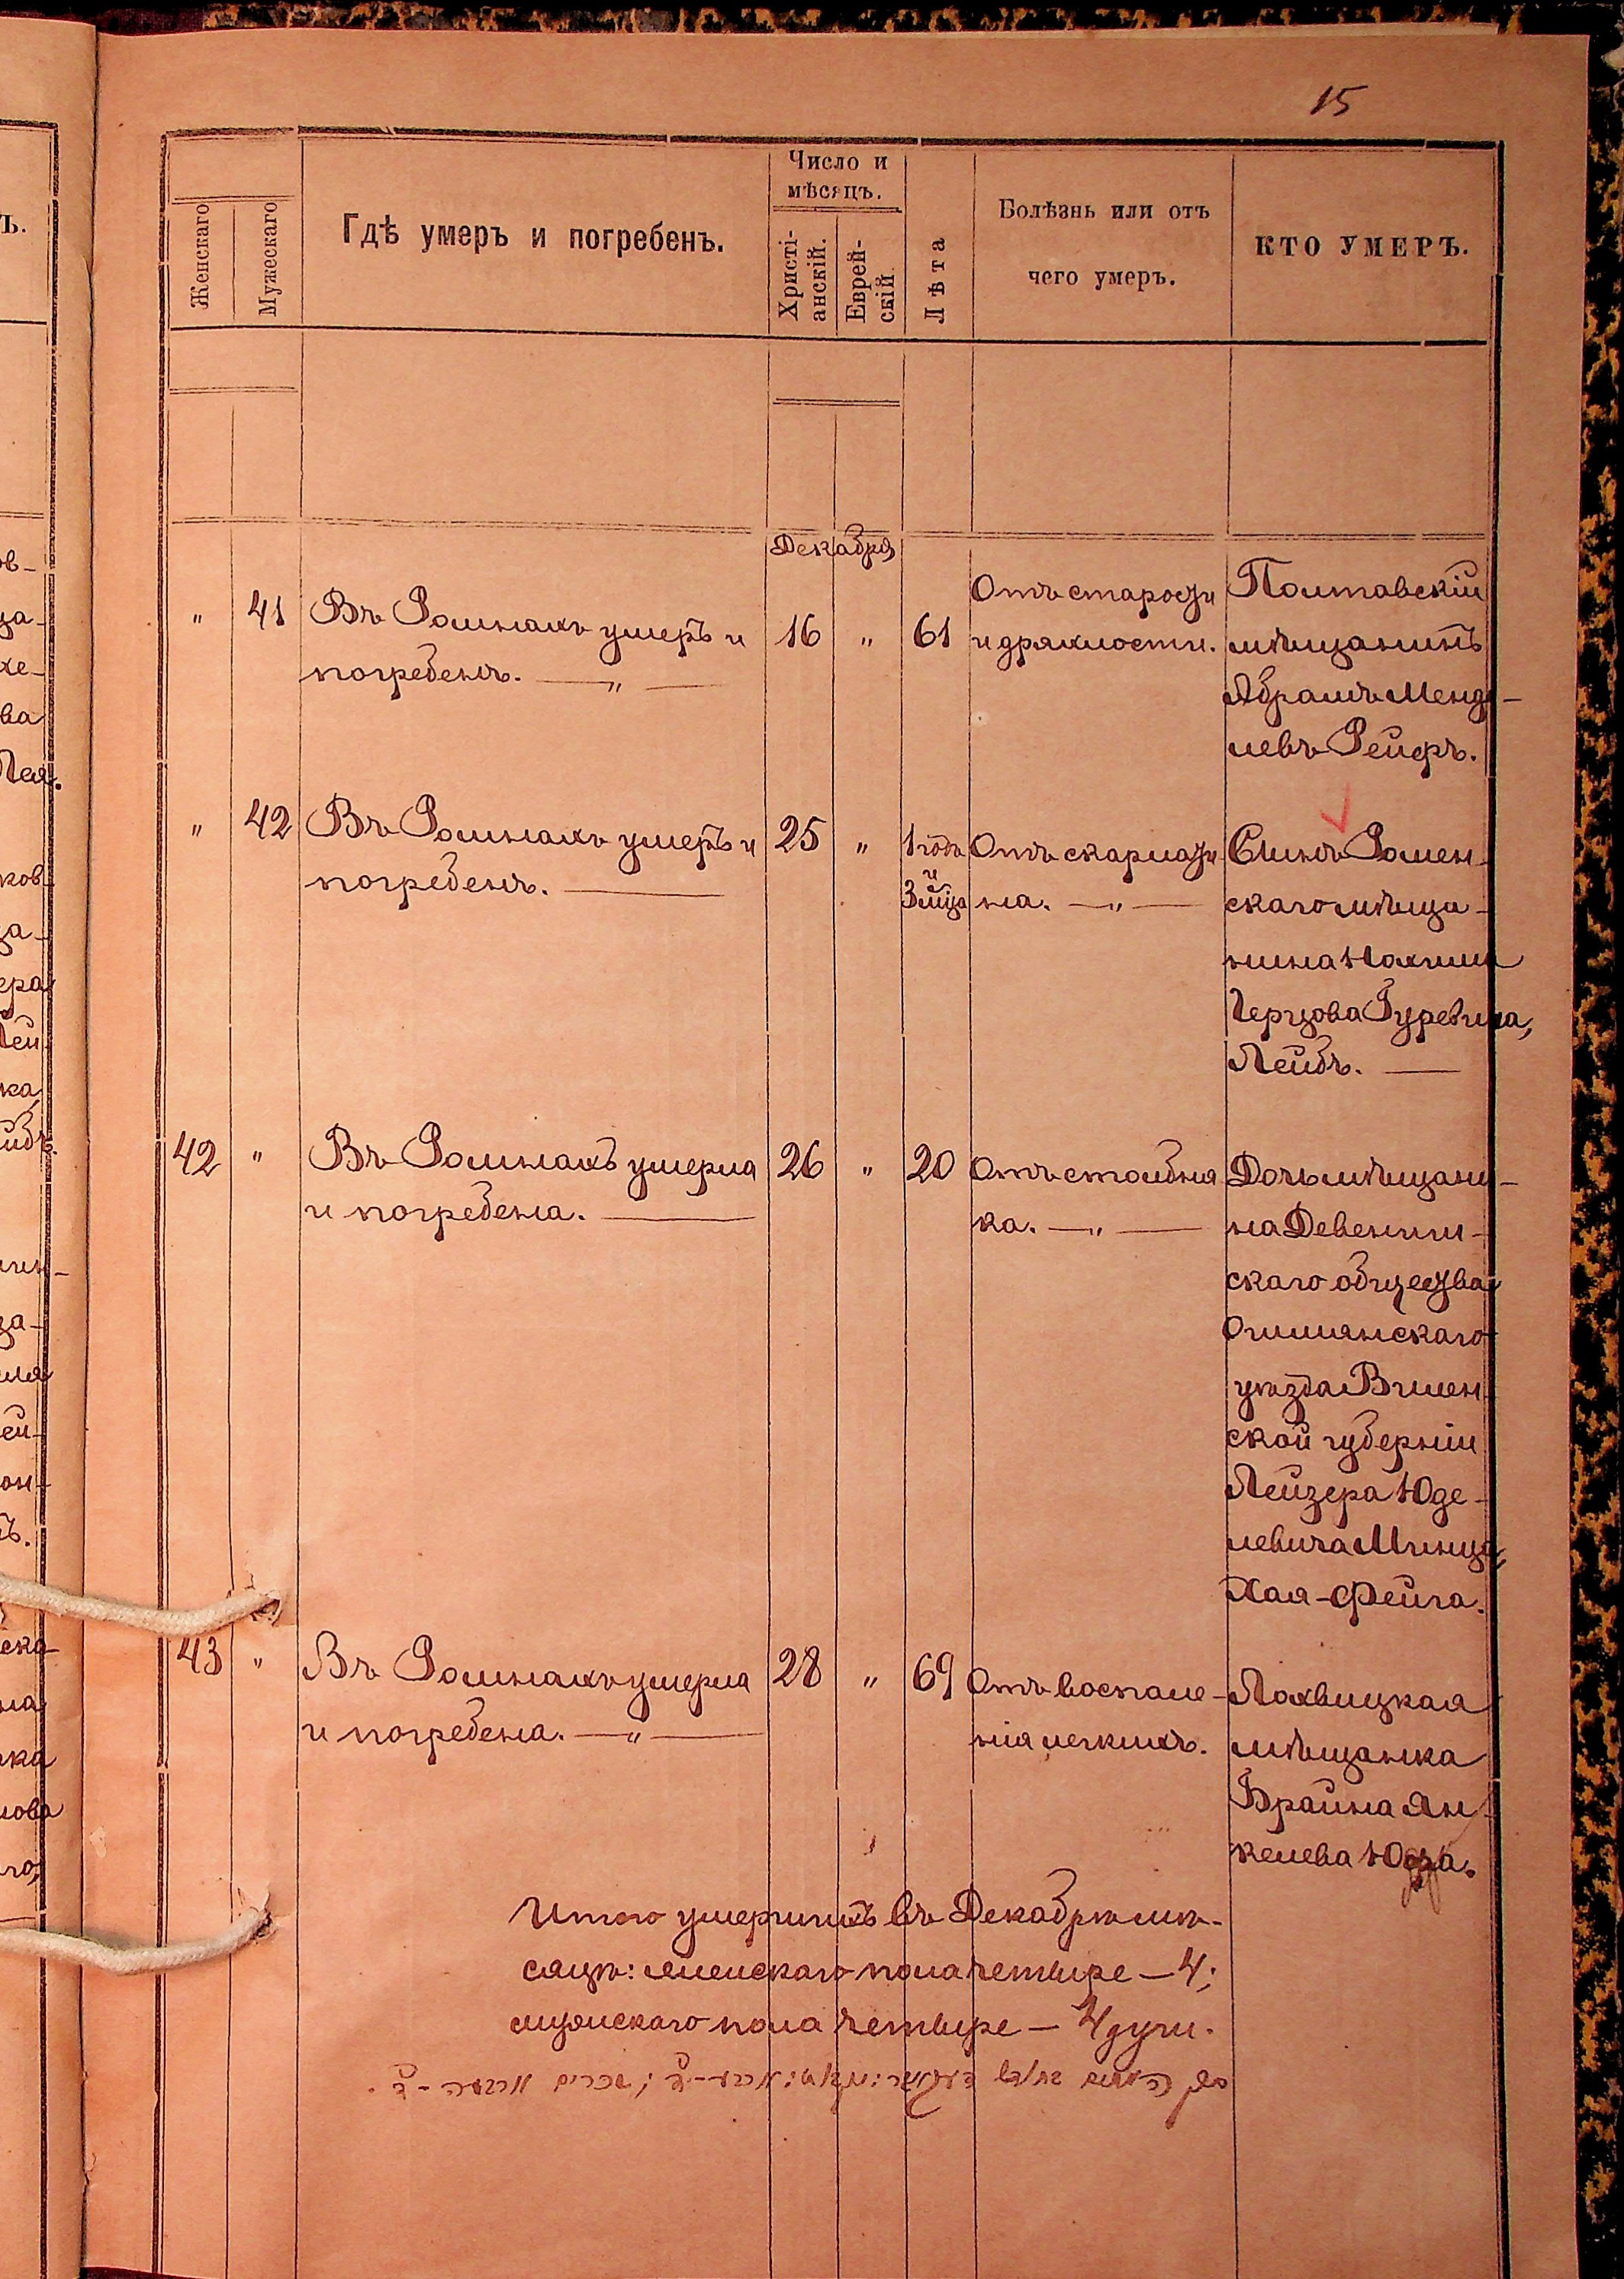 15
Женскаго
Мужескаго
Гдѣ умеръ и погребенъ.
Число и
мѣсяцъ.
Христі-
анскій.
Еврей-
скій
Лѣта
Болѣзнь или отъ
чего умеръ.
КТО УМЕРЪ.
Декабря
" 41 Въ Ромнахъ умеръ и
погребенъ. — " —
16 " 61
Отъ старости
и дряхлости.
Полтавскій
мѣщанинъ
Абрамъ Менде-
левъ Рейфъ.
" 42 Въ Ромнахъ умеръ и
погребенъ. —
25 " 1 годъ
и
3 м͠ца
Отъ скарлати-
на. — " —
Сынъ Ромен-
скаго мѣща-
нина Нохима
Герцова Гуревича,
Лейбъ. —
42 " Въ Ромнахъ умерла
и погребена. —
26 " 20
Отъ столбня-
ка. — " —
Дочь мѣщани-
на Девениш-
скаго общества
Ошмянскаго
уѣзда Вилен-
ской губерніи
Лейзера Юде-
левича Минца,
Хая-Фейга.
43 " Въ Ромнахъ умерла
и погребена. — " —
28 " 69
Отъ воспале-
нія легкихъ.
Лохвицкая
мѣщанка
Брайна Ян-
келева
Итого умершихъ въ Декабрѣ мѣ-
сяцѣ: женскаго пола четыре — 4;
мужскаго пола четыре — 4 души.